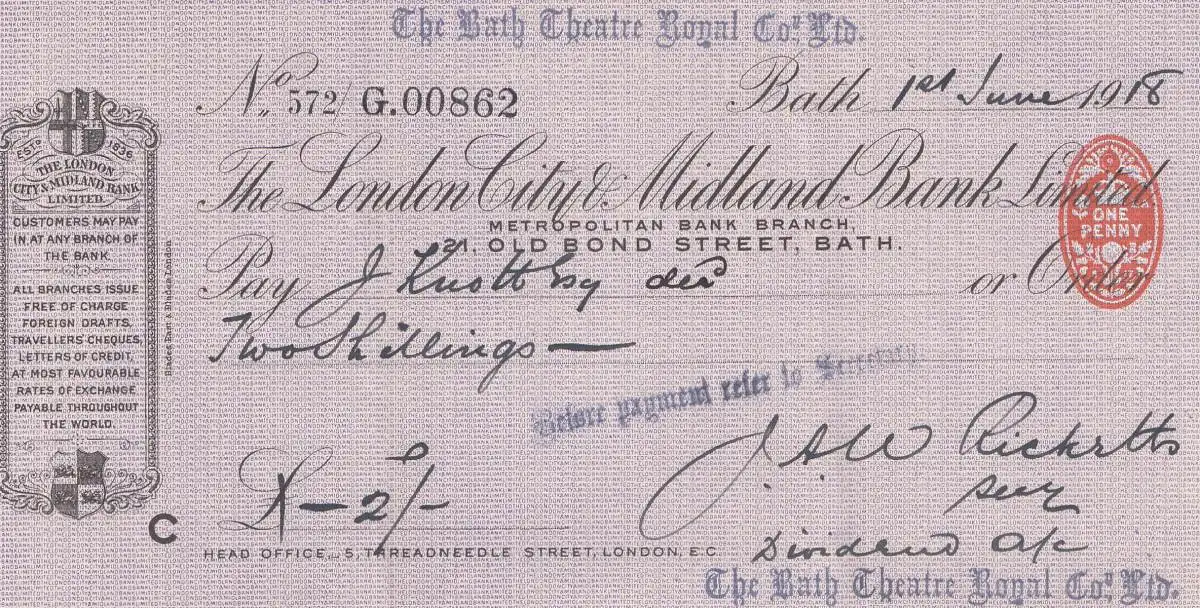 The Bath Theatre Royal Coy. Ltd.
No. 572/ G.00862
Bath 1st June 1918
ESTD 1836
THE LONDON
CITY & MIDLAND BANK
LIMITED.
CUSTOMERS MAY PAY
IN AT ANY BRANCH OF
THE BANK
ALL BRANCHES ISSUE
FREE OF CHARGE
FOREIGN DRAFTS,
TRAVELLERS CHEQUES,
LETTERS OF CREDIT,
AT MOST FAVOURABLE
RATES OF EXCHANGE
PAYABLE THROUGHOUT
THE WORLD.
C
The London City & Midland Bank Limited
METROPOLITAN BANK BRANCH,
21, OLD BOND STREET, BATH.
ONE
PENNY
Pay J Knott Esq decd or Order
Two Shillings —
Before payment refer to Secretary
£ – 2/-
J. A. W Ricketts
Secy
Dividend a/c
HEAD OFFICE, 5, THREADNEEDLE STREET, LONDON, E.C.
The Bath Theatre Royal Coy. Ltd.